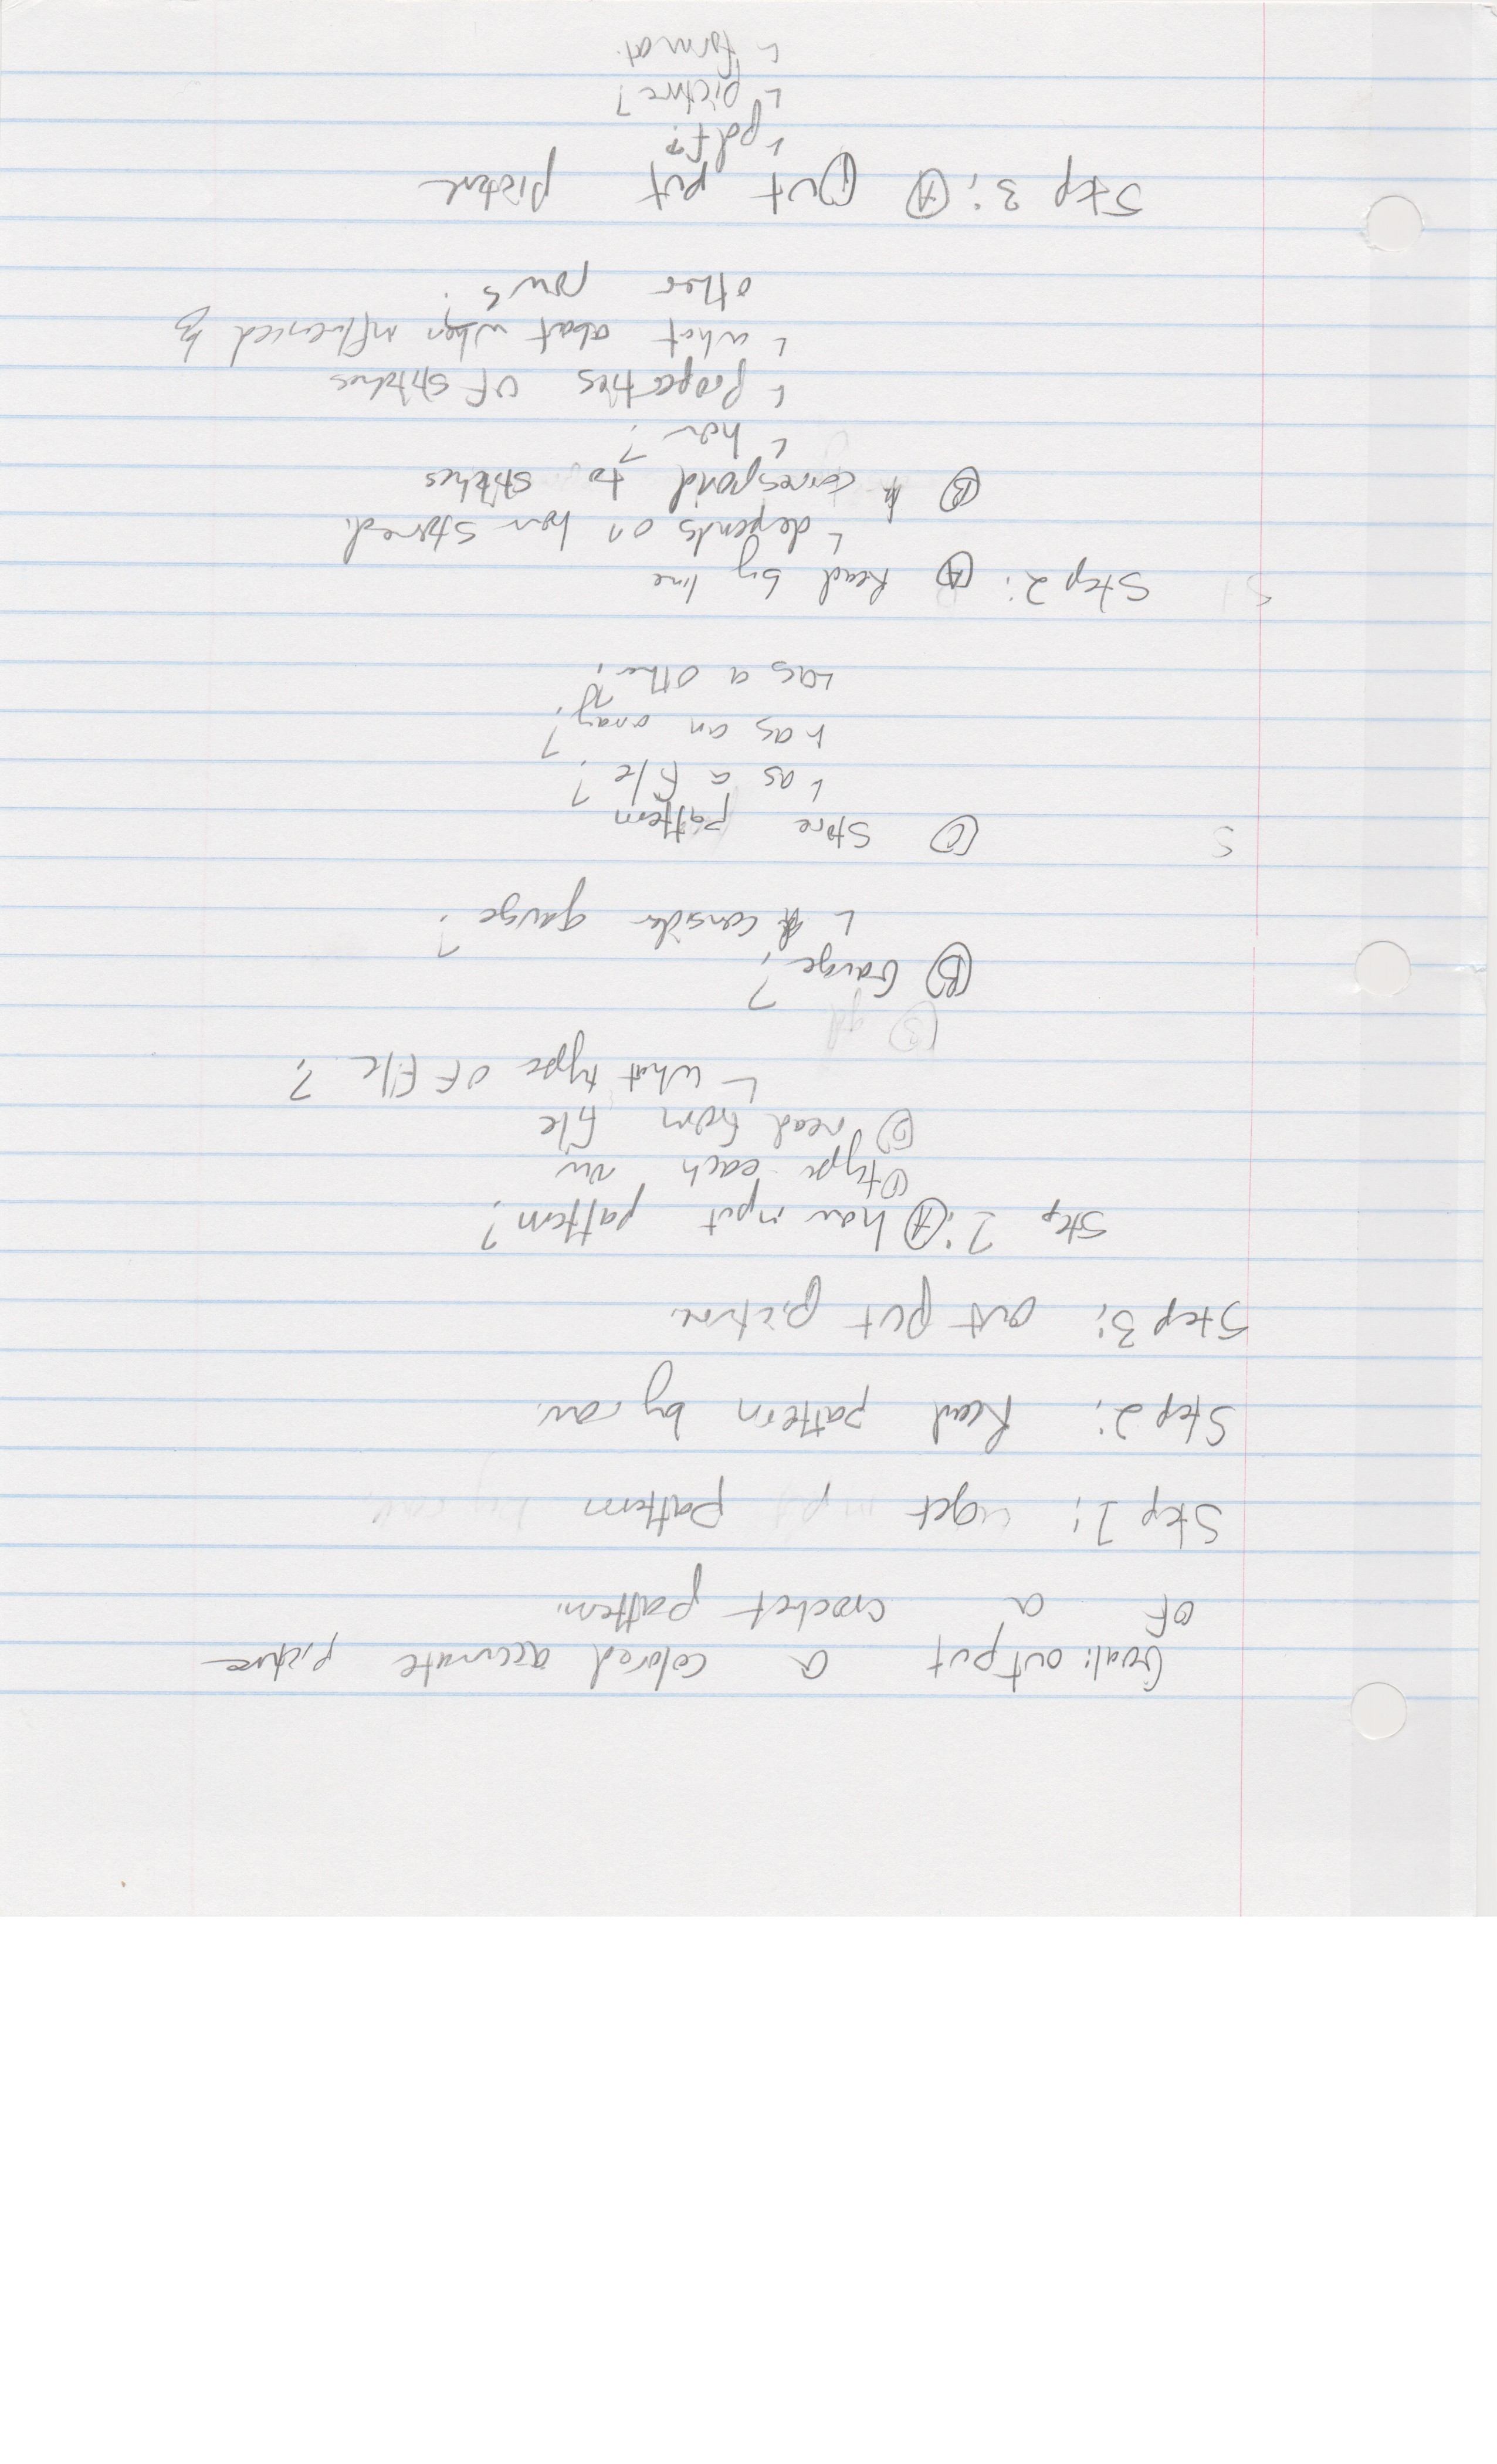 Goal: output a colored accurate picture
of a crochet pattern.
Step 1: get pattern
Step 2: Read pattern by row.
Step 3: out put picture.
Step 1: Ⓐ how input pattern?
① type each in
② read from file
└ what type of file?
Ⓑ Gauge?
└ consider gauge?
Ⓒ Store pattern
└ as a file?
└ as an array?
└ as a other?
Step 2: Ⓐ Read by line
└ depends on how stored.
Ⓑ correspond to stitches
└ how?
└ properties of stitches
└ what about when influenced by
other rows?
Step 3: Ⓐ Out put picture
└ pdf?
└ picture?
└ format